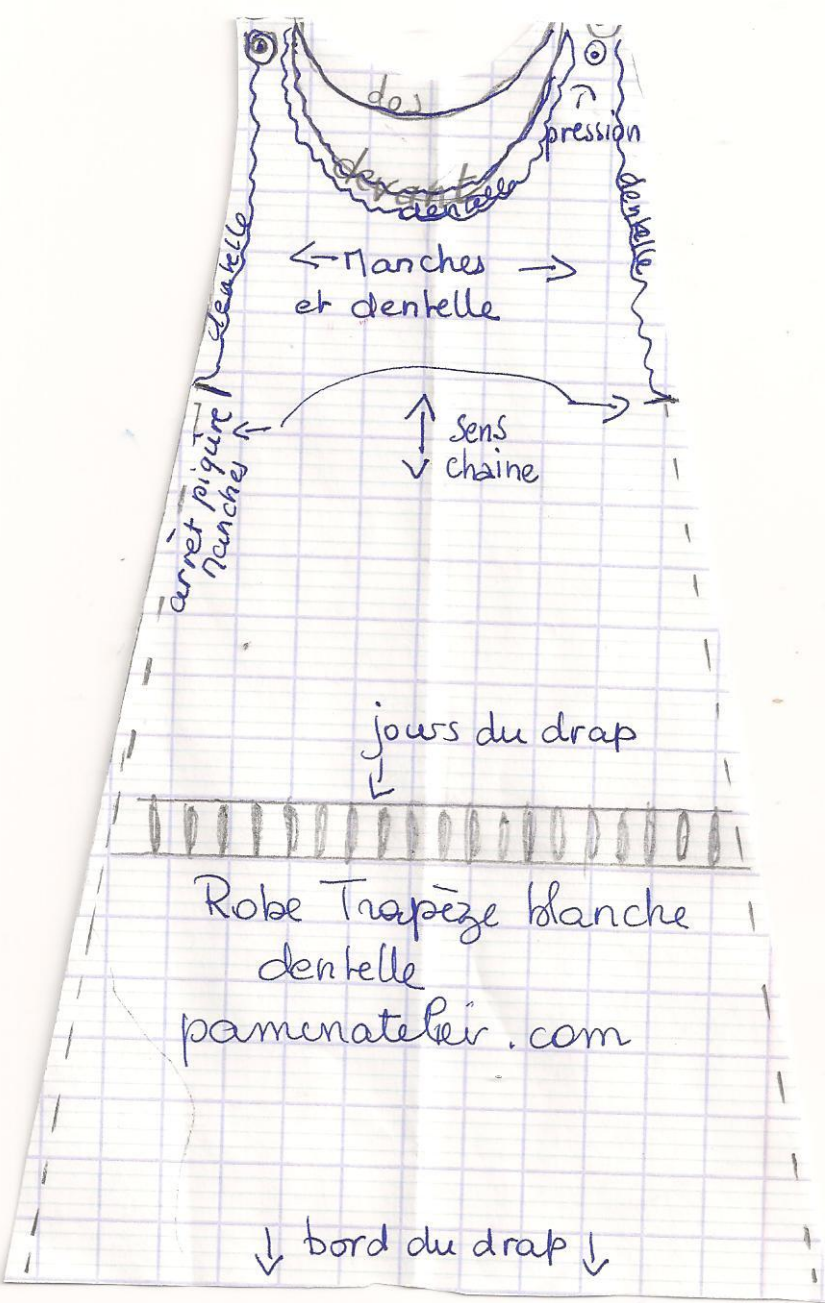 dos
pression
devant
dentelle
dentelle
dentelle
← Manches →
et dentelle
arrêt piqûre
Manches
sens
chaine
jours du drap
Robe Trapèze blanche
dentelle
pamenatelier.com
↓ bord du drap ↓